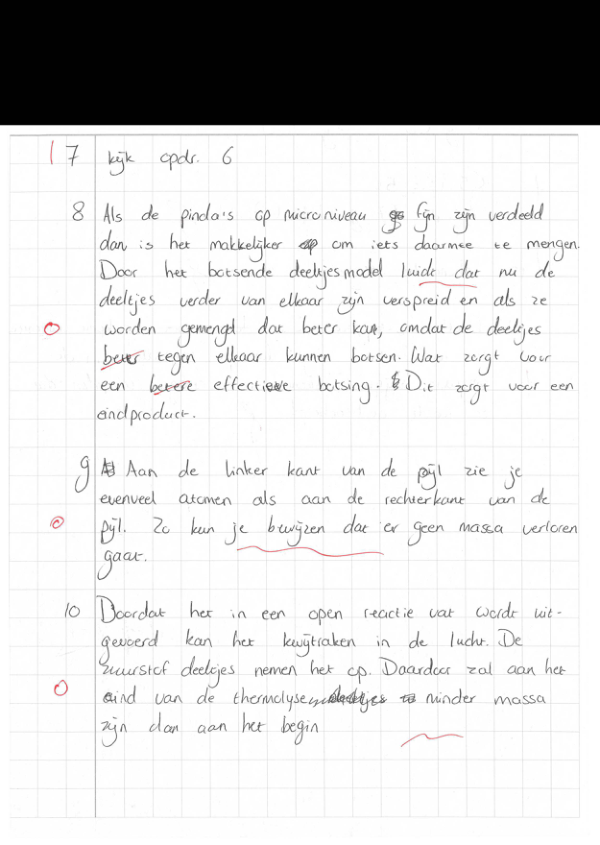 17 kijk opdr. 6
8 Als de pinda's op microniveau fijn zijn verdeeld
dan is het makkelijker om iets daarmee te mengen.
Door het botsende deeltjesmodel luidt dat nu de
deeltjes verder van elkaar zijn verspreid en als ze
worden gemengd dat beter kan, omdat de deeltjes
beter tegen elkaar kunnen botsen. Wat zorgt voor
een betere effectieve botsing. Dit zorgt voor een
eindproduct.
9 Aan de linker kant van de pijl zie je
evenveel atomen als aan de rechterkant van de
pijl. Zo kun je bewijzen dat er geen massa verloren
gaat.
10 Doordat het in een open reactie vat wordt uit-
gevoerd kan het kwijtraken in de lucht. De
zuurstof deeltjes nemen het op. Daardoor zal aan het
eind van de thermolyse minder massa
zijn dan aan het begin